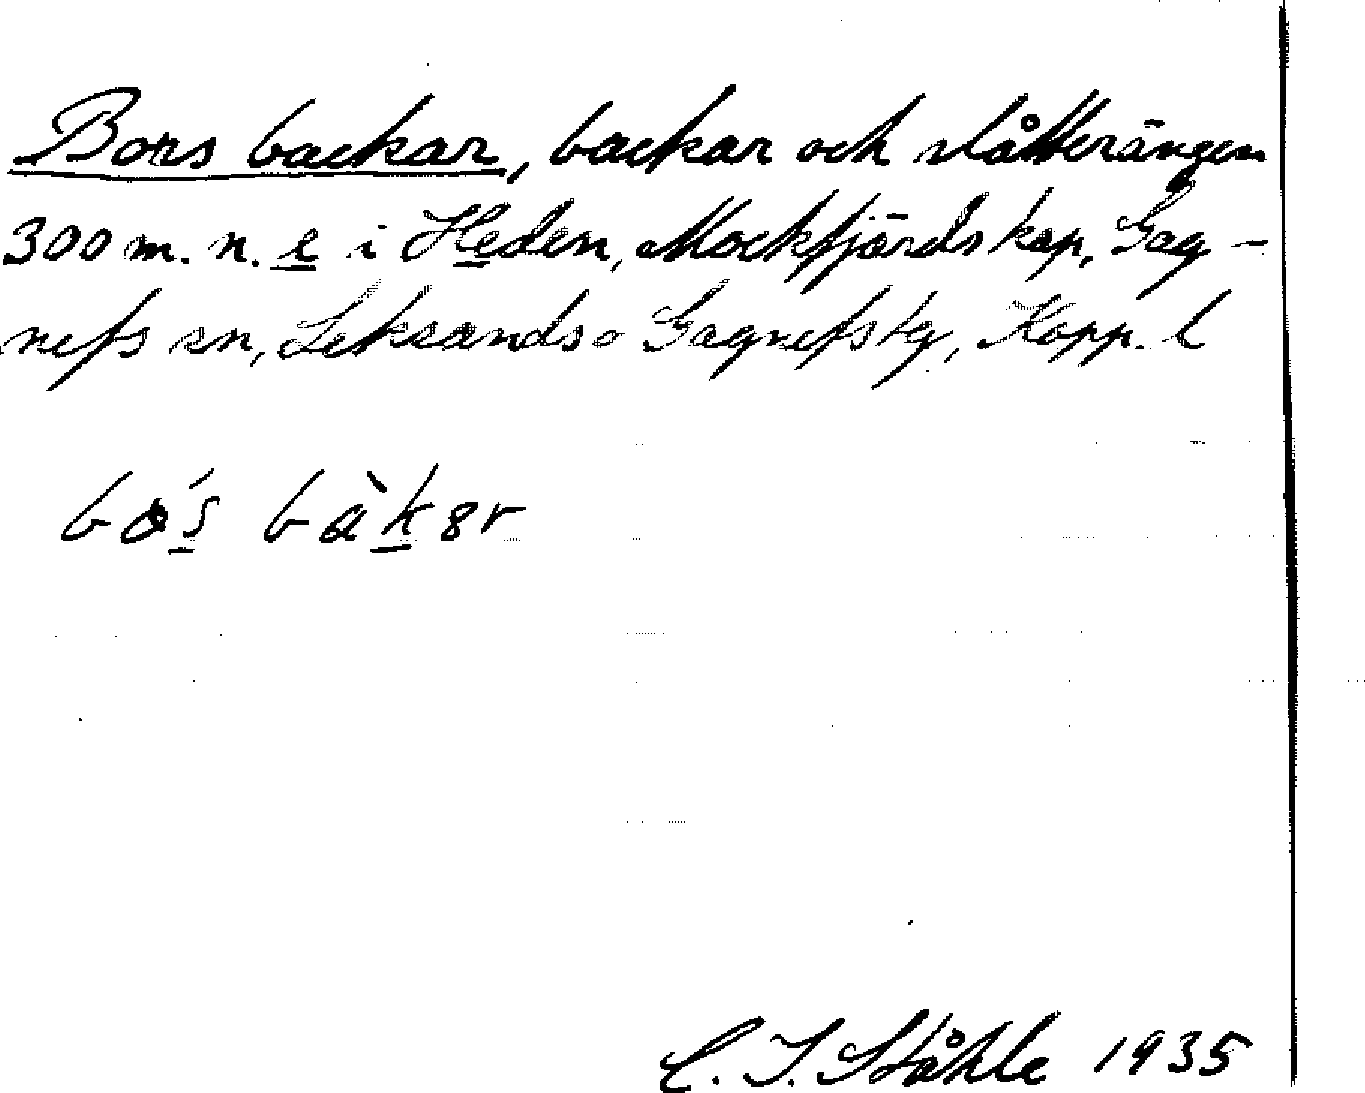 Bors backar, backar och slåtterängen
300 m. n. e i Heden, Mockfjärds kap, Gag-
nefs sn, Leksands o Gagnefs tg, Kopp. l
bo's bàkər
C. I. Ståhle 1935